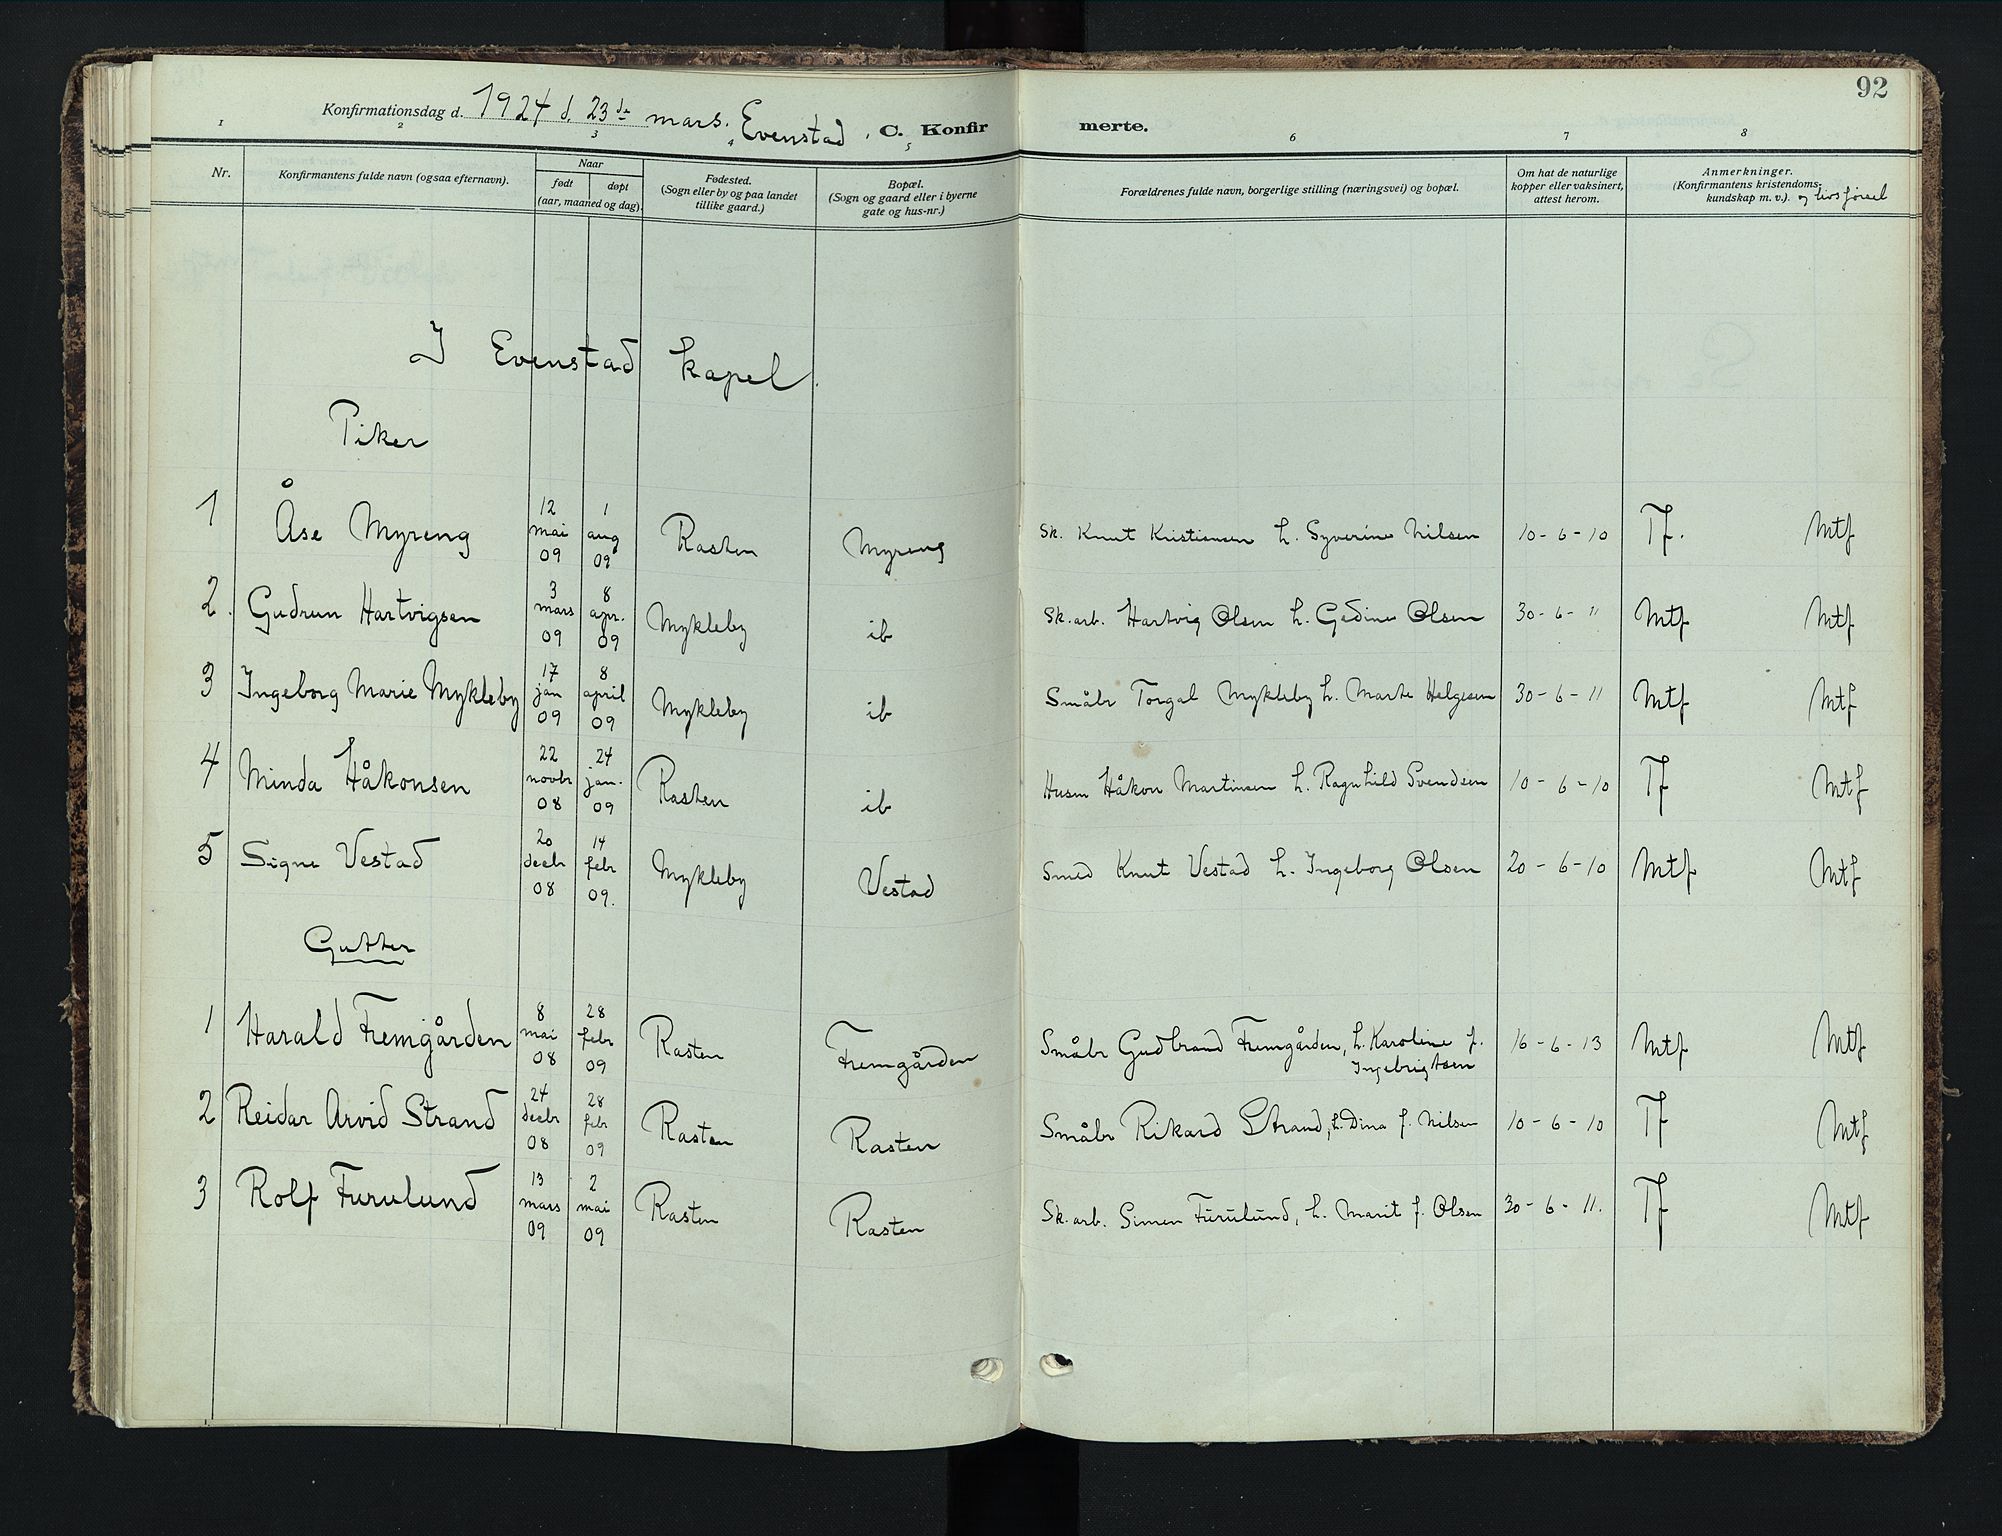 92
Konfirmationsdag d. 1924 d. 23de mars. Evenstad. C. Konfirmerte.
1 2 3 4 5 6 7 8
Nr. Konfirmantens fulde navn (ogsaa efternavn). Naar født døpt (aar, maaned og dag). Fødested. (Sogn eller by og paa landet tillike gaard.) Bopæl. (Sogn og gaard eller i byerne gate og hus-nr.) Forældrenes fulde navn, borgerlige stilling (næringsvei) og bopæl. Om hat de naturlige kopper eller vaksinert, attest herom. Anmerkninger. (Konfirmantens kristendomskundskap m. v.). og livsførsel
I Evenstad kapel.
Piker
1 Åse Myreng 12 mai 09 1 aug 09 Rasten Myreng Sk. Knut Kristiansen h. Syverine Nilsen 10-6-10 Tf. Mtf
2. Gudrun Hartvigsen 3 mars 09 8 apr. 09 Mykleby ib Sk. arb. Hartvig Olsen h. Gedine Olsen 30-6-11 Mtf Mtf
3 Ingeborg Marie Mykleby 17 jan 09 8 april 09 Mykleby ib Småbr Torgal Mykleby h. Marte Helgesen 30-6-11 Mtf Mtf
4 Minda Håkonsen 22 novbr 08 24 jan. 09 Rasten ib Husm Håkon Martinsen h. Ragnhild Svendsen 10-6-10 Tf Mtf
5 Signe Vestad 20 decbr 08 14 febr 09. Mykleby Vestad Smed Knut Vestad h. Ingeborg Olsen 20-6-10 Mtf Mtf
Gutter
1 Harald Fremgården 8 mai 08 28 febr 09 Rasten Fremgården Småbr Gudbrand Fremgården, h. Karoline f. Ingebrigtsen 16-6-13 Mtf Mtf
2 Reidar Arvid Strand 24 decbr 08 28 febr 09 Rasten Rasten Småbr Rikard Strand, h. Dina f. Nilsen 10-6-10 Tf Mtf
3 Rolf Furulund 13 mars 09 2 mai 09 Rasten Rasten Sk. arb. Simen Furulund, h. Marit f. Olsen 30-6-11. Tf Mtf